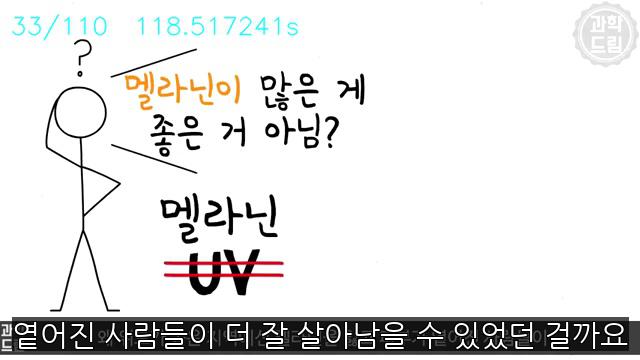 33/110 118.517241s
과학
드림
?
멜라닌이 많은 게
좋은 거 아님?
멜라닌
UV
옅어진 사람들이 더 잘 살아남을 수 있었던 걸까요